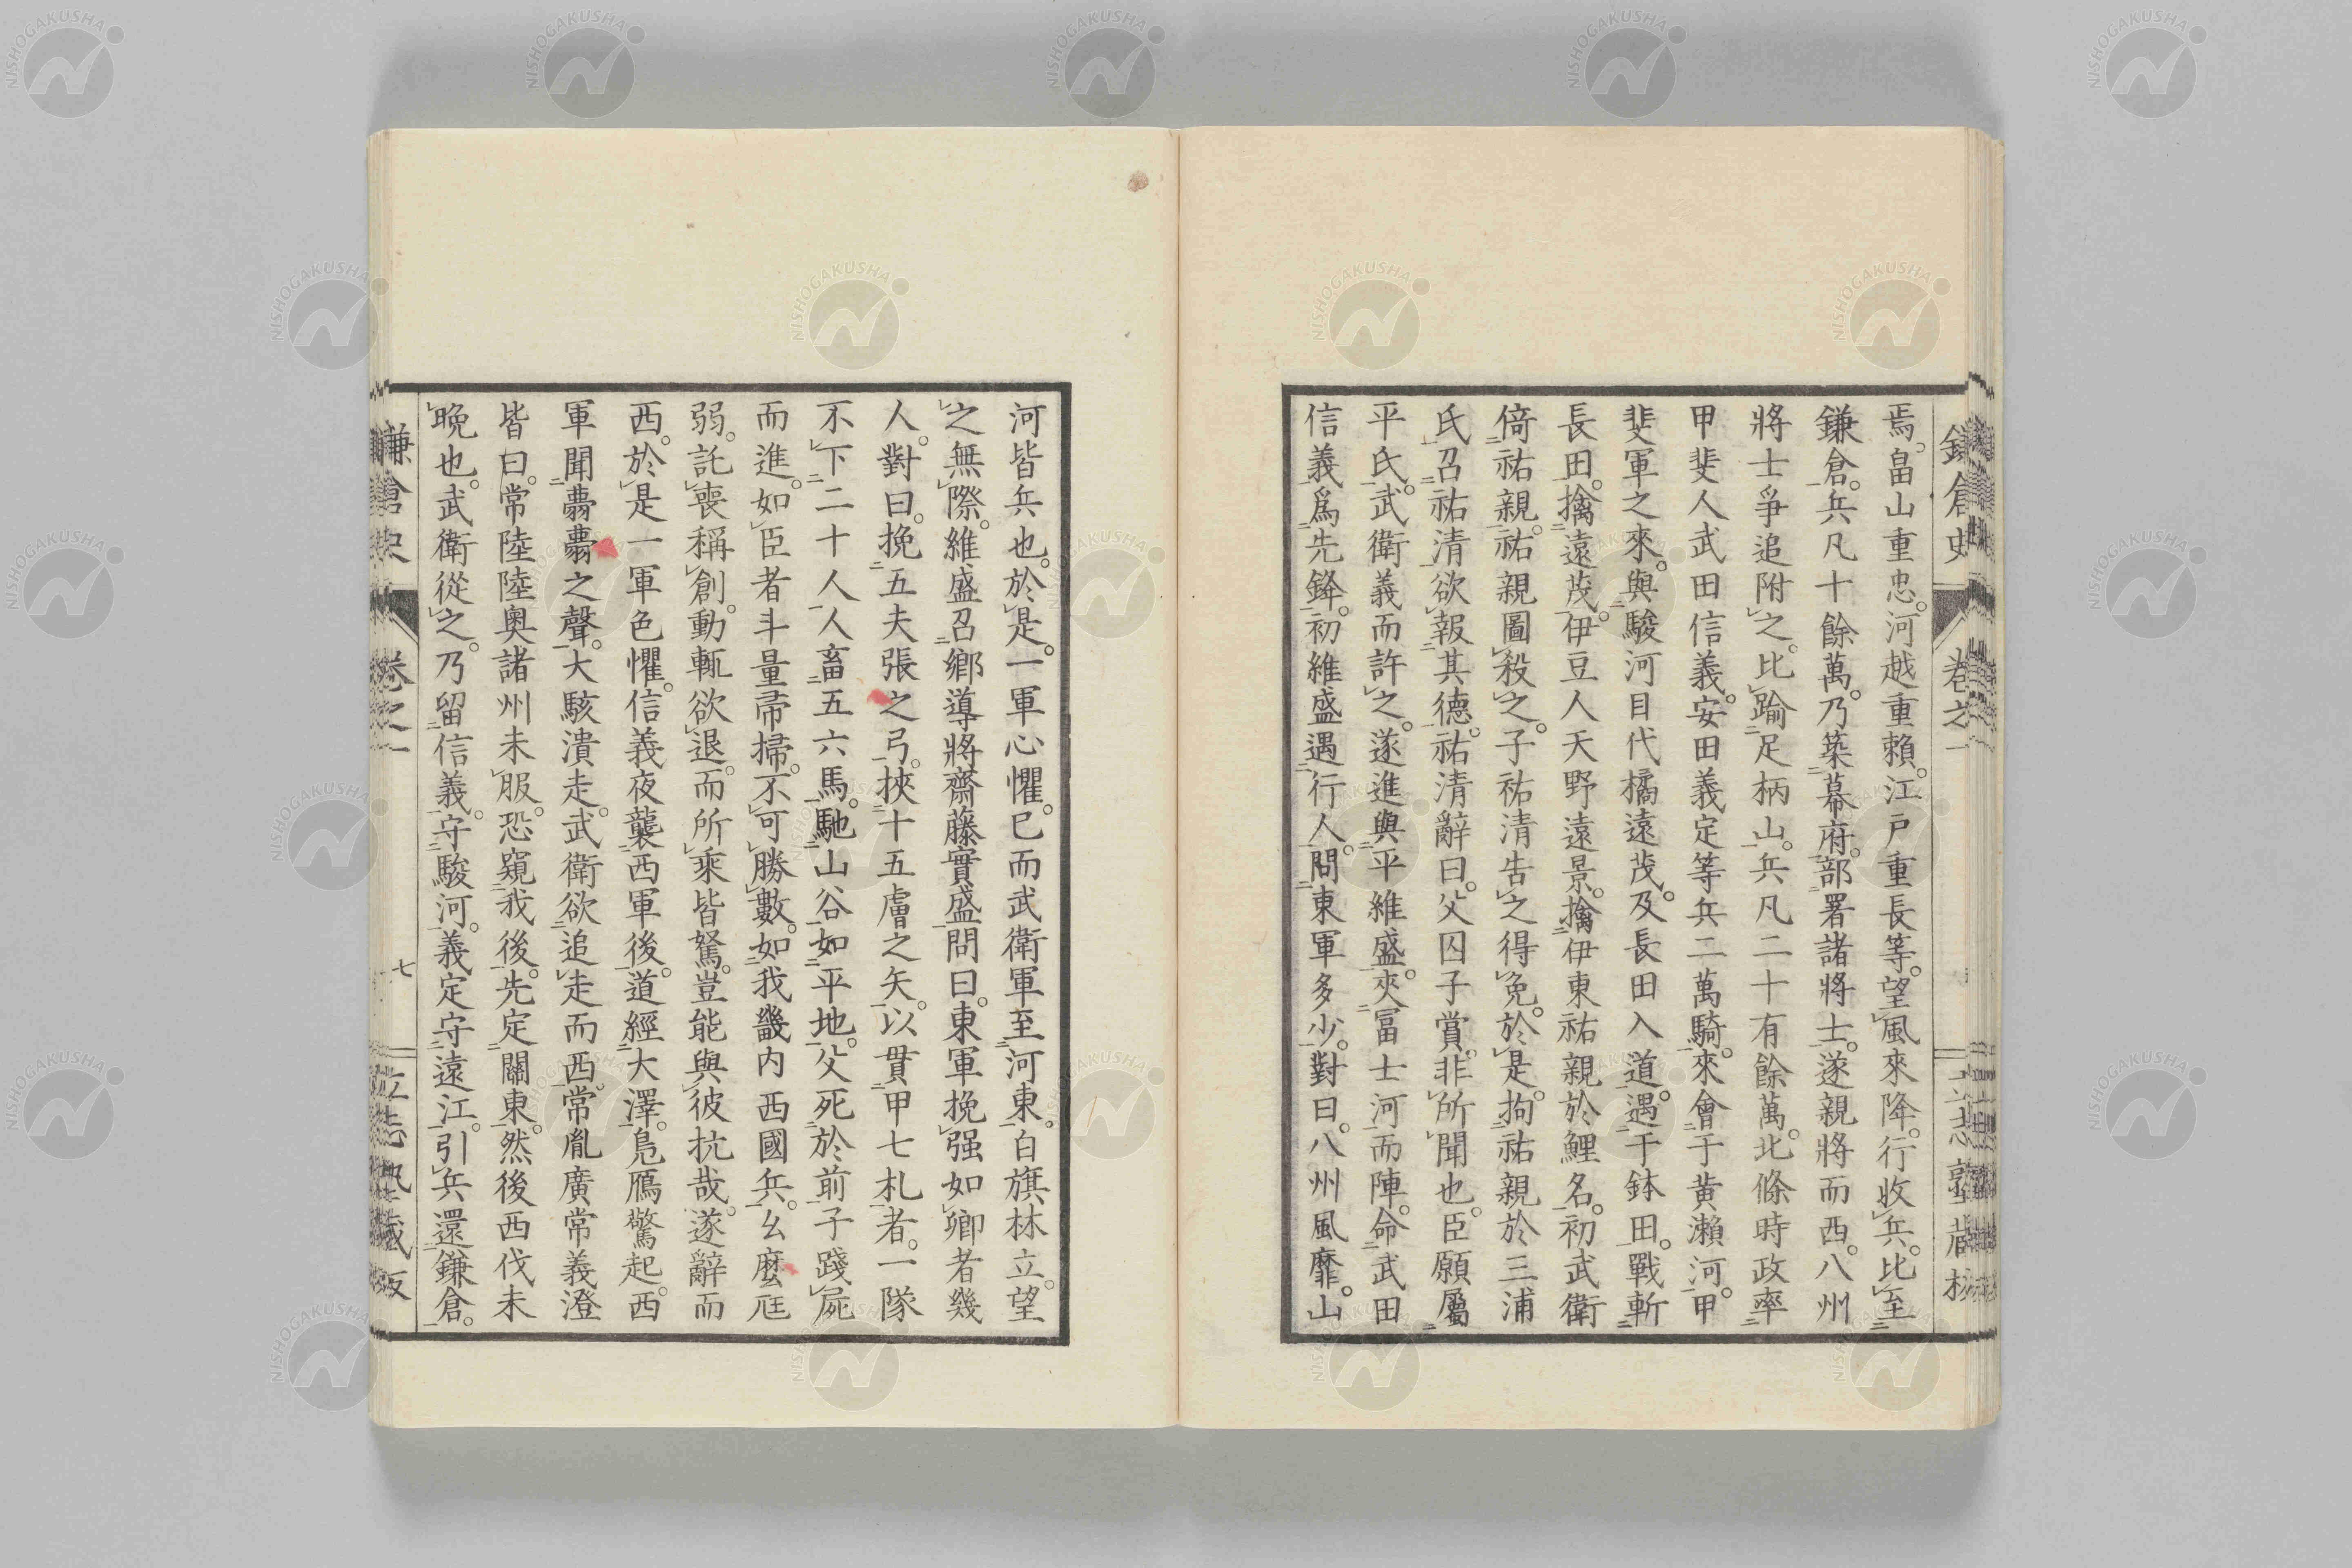 鎌倉史 卷之一
焉。畠山重忠。河越重賴。江戸重長等。望風來降。行收兵。比至
鎌倉。兵凡十餘萬。乃築幕府。部署諸將士。遂親將而西。八州
將士爭追附之。比踰足柄山。兵凡二十有餘萬。北條時政率
甲斐人武田信義。安田義定等兵二萬騎。來會于黄瀨河。甲
斐軍之來。與駿河目代橘遠茂。及長田入道。遇于鉢田。戰斬
長田。擒遠茂。伊豆人天野遠景。擒伊東祐親於鯉名。初武衛
倚祐親。祐親圖殺之。子祐清告之得免。於是。拘祐親於三浦
氏。召祐清欲報其德。祐清辭曰。父囚子賞。非所聞也。臣願屬
平氏。武衛義而許之。遂進與平維盛。夾冨士河而陣。命武田
信義爲先鋒。初維盛遇行人。問東軍多少。對曰。八州風靡。山
河皆兵也。於是。一軍心懼。已而武衛軍至河東。白旗林立。望
之無際。維盛召鄉導將齋藤實盛問曰。東軍挽强如卿者幾
人。對曰。挽五夫張之弓。挾十五膚之矢。以貫甲七札者。一隊
不下二十人。人畜五六馬。馳山谷如平地。父死於前子踐屍
而進。如臣者斗量帚掃。不可勝數。如我畿内西國兵。幺麼尫
弱。託喪稱創。動輒欲退。而所乘皆駑。豈能與彼抗哉。遂辭而
西。於是一軍色懼。信義夜襲西軍後。道經大澤。鳧鴈驚起。西
軍聞翿翿之聲。大駭潰走。武衛欲追走而西。常胤廣常義澄
皆曰。常陸陸奥諸州未服。恐窺我後。先定關東。然後西伐未
晚也。武衛從之。乃留信義。守駿河。義定守遠江。引兵還鎌倉。
鎌倉史 卷之一 七
NISHOGAKUSHA